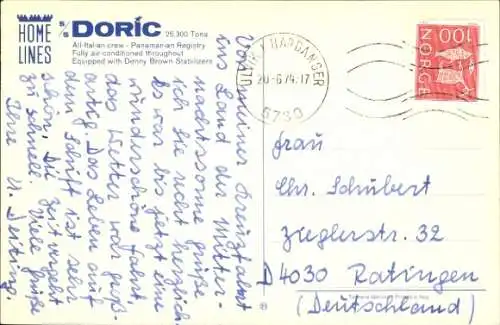 HOME LINES
S/S DORIC 25,300 Tons
All-Italian crew - Panamanian Registry
Fully air-conditioned throughout
Equipped with Denny Brown Stabilizers
HARDANGER
20-6-74-17
5730
NORGE 100
Von meiner Kreuzfahrt
ins Land der Mitter-
nachtssonne grüße
ich Sie recht herzlich.
Es war bis jetzt eine
wunderschöne Fahrt,
das Wetter war groß-
artig. Das Leben auf
dem Schiff ist sehr
schön. Die Zeit vergeht
zu schnell. Viele Grüße
Ihre
Frau
Chr. Schubert
Zieglerstr. 32
D4030 Ratingen
(Deutschland)